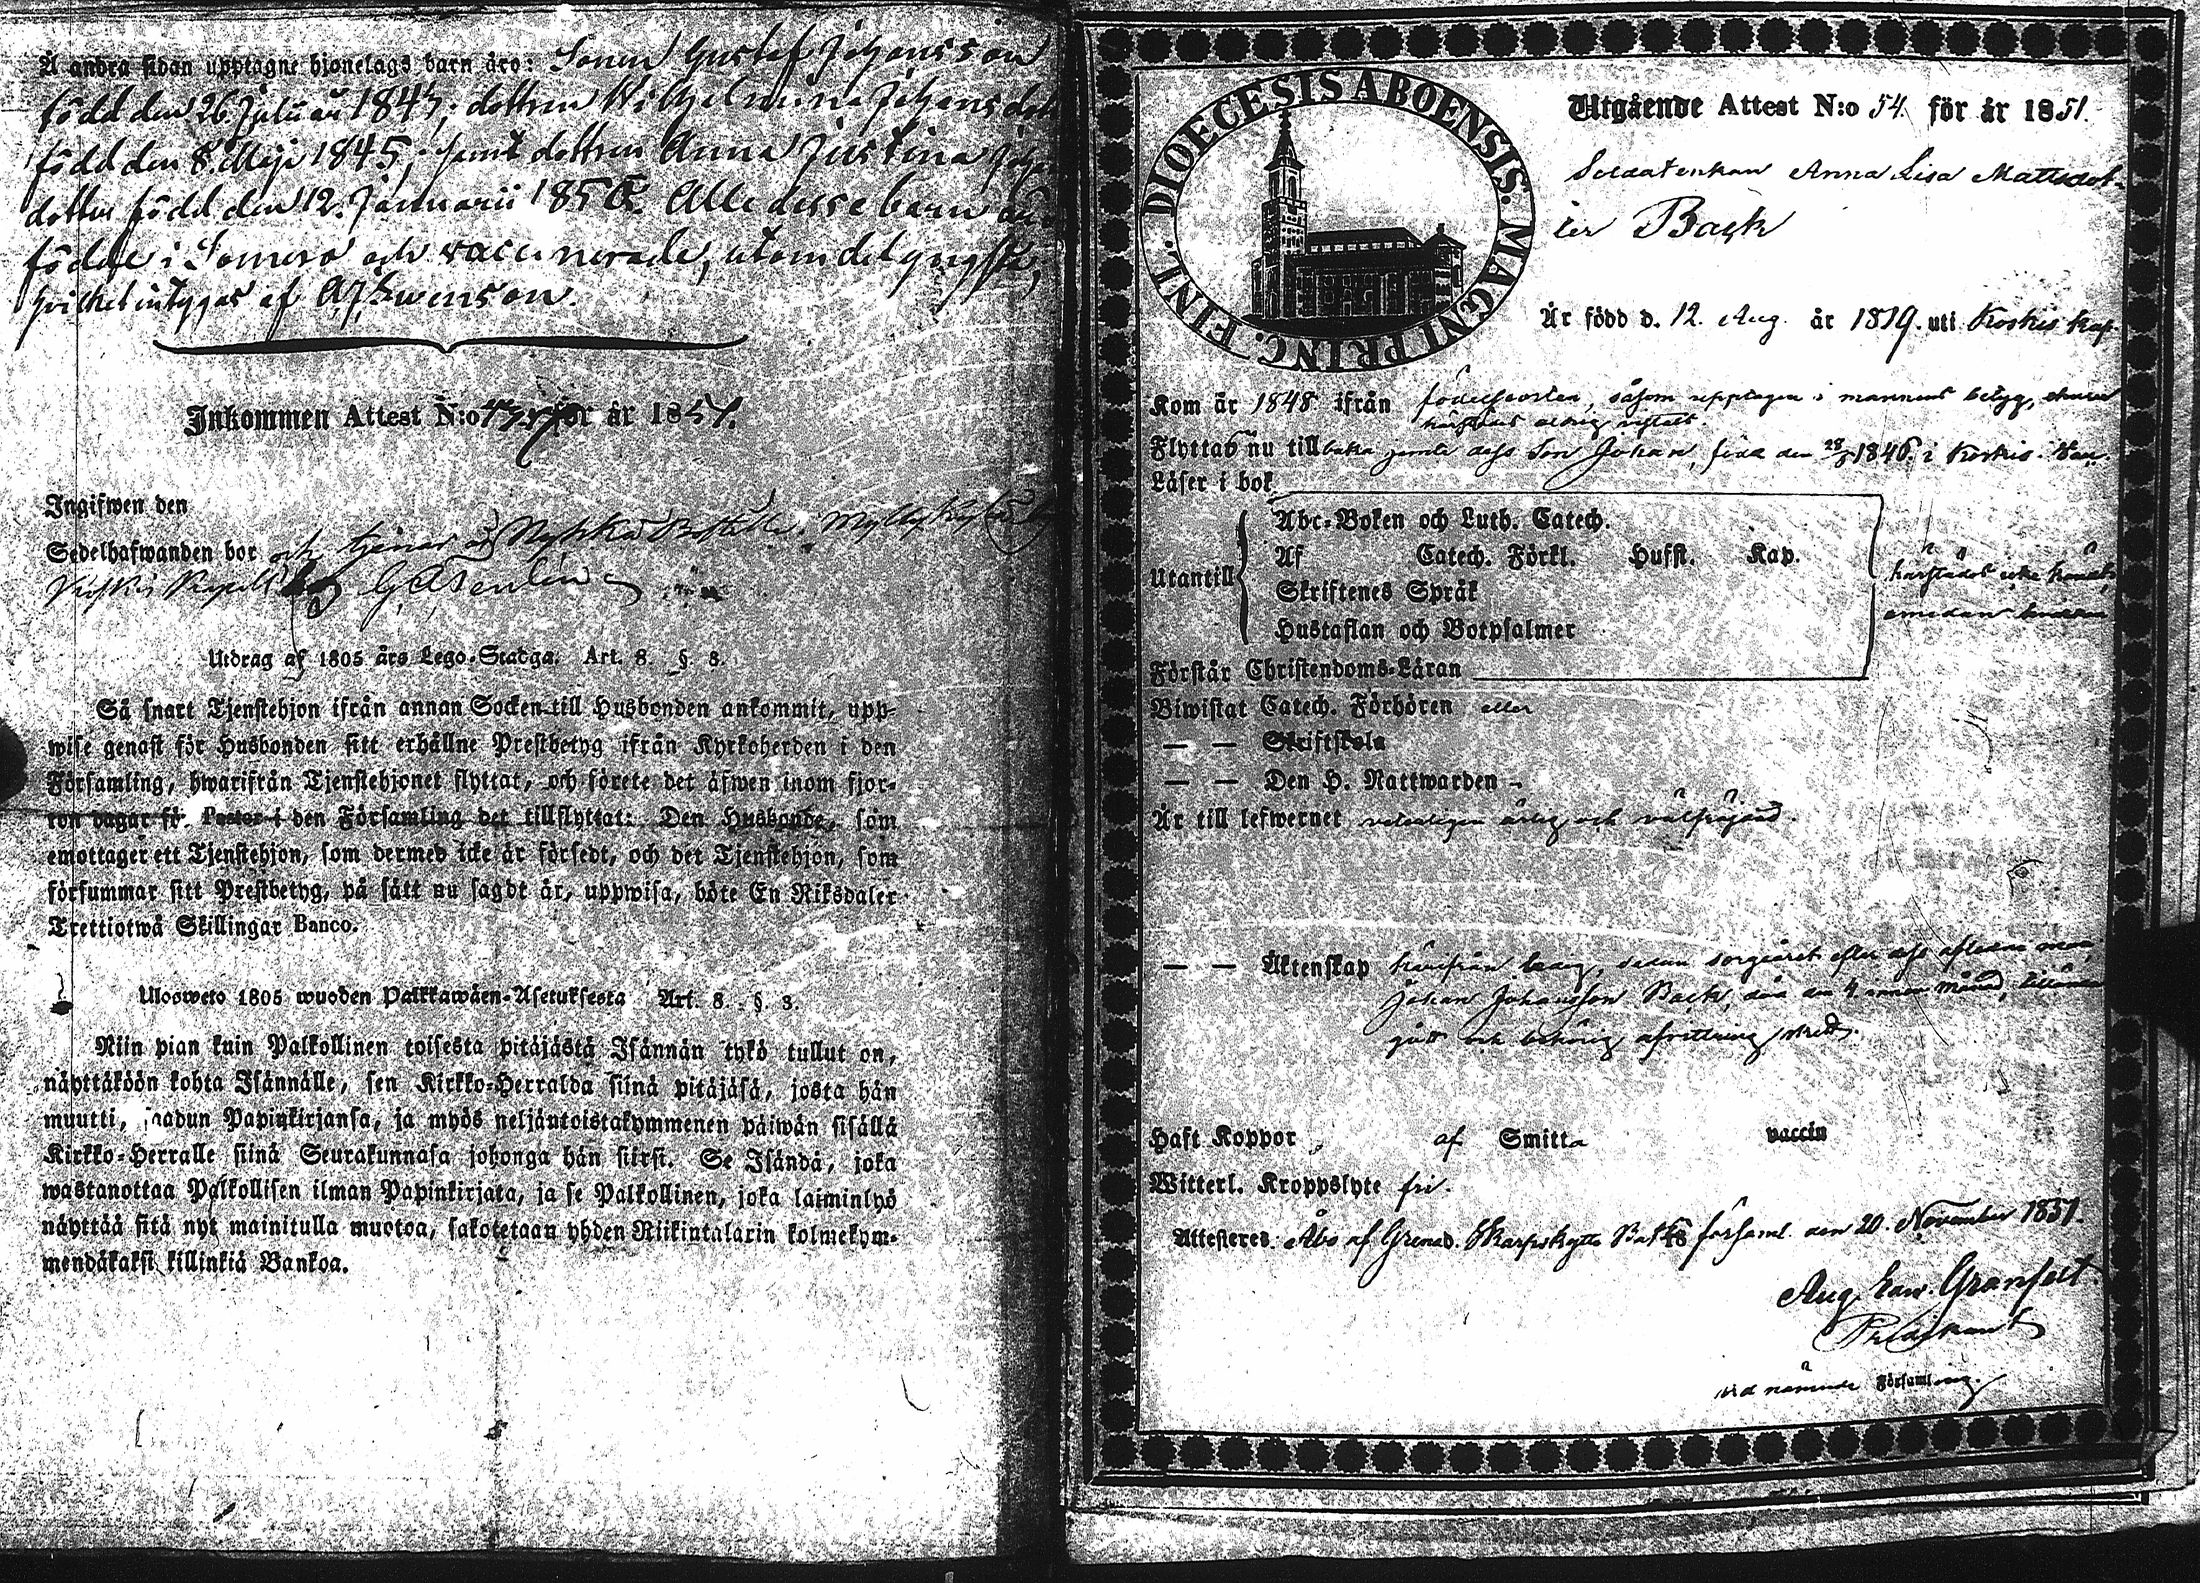 Å andra sidan upptagne hjonelags barn äro: Sonen Gustaf Johansson
född den 26 Julii 184 ; dottren Wilhelmina Johansdott
född den 8 Maji 1845; samt dottren Anna Justina Joh
dotter född den 12. Januarii 1850. Alla desse barn äro
födde i Somero och vaccinerade, utom det yngsta,
hvilket intygas af AJ Swenson.
Inkommen Attest N:o för år 1851.
Ingifwen den
Sedelhafwanden bor och tjenar
Koskis Kapell
Utdrag af 1805 års Lego-Stadga. Art. 8. §. 8.
Så snart Tjenstehjon ifrån annan Socken till Husbonden ankommit, upp-
wise genast för Husbonden sitt erhållne Prestbetyg ifrån Kyrkoherden i den
Församling, hwarifrån Tjenstehjonet flyttat, och förete det äfwen inom fjor-
ton dagar för Pastor i den Församling det tillflyttat: Den Husbonde, som
emottager ett Tjenstehjon, som dermed icke är försedt, och det Tjenstehjon, som
försummar sitt Prestbetyg, på sätt nu sagdt är, uppwisa, böte En Riksdaler
Trettiotwå Skillingar Banco.
Ulosweto 1805 wuoden Palkkawäen-Asetuksesta Art. 8. §. 8.
Niin pian kuin Palkollinen toisesta pitäjästä Isännän tykö tullut on,
näyttäköön kohta Isännälle, sen Kirkko-Herralda siinä pitäjäsä, josta hän
muutti, saadun Papinkirjansa, ja myös neljäntoistakymmenen päiwän sisällä
Kirkko-Herralle siinä Seurakunnasa johonga hän siirsi. Se Isändä, joka
wastanottaa Palkollisen ilman Papinkirjata, ja se Palkollinen, joka laiminlyö
näyttää sitä nyt mainitulla muotoa, sakotetaan yhden Riikintalarin kolmekym-
mendäkaksi killinkiä Bankoa.
DIOECESIS ABOENSIS. MAGNI PRINC. FINL.
Utgående Attest N:o 54. för år 1851.
Soldatenkan Anna Lisa Mattsdot-
ter Back
Är född d. 12. Aug. år 1819. uti Koskis kap.
Kom år 1848 ifrån födelseorten, såsom upptagen i mannens betyg,
härstädes aldrig vistats.
Flyttad nu till baka jemte dess Son Johan, född den 28/8 1846. i Koskis Kap.
Läser i bok
Utantill
Abc-Boken och Luth. Catech.
Af Catech. Förkl. Hufst. Kap.
Skriftenes Språk
Hustaflan och Botpsalmer
härstädes icke
emedan
Förstår Christendoms-Läran
Biwistat Catech. Förhören eller
— — Skriftskola
— — Den H. Nattwarden -
Är till lefwernet veterligen ärlig och välfrejdad.
— — Äktenskap hinderfri ledig, sedan sorgeåret efter dess aflidne man,
Johan Johansson Back, död den 4. månad, tilländagått
och behörig afvittring skedt.
Haft Koppor af Smitta vaccin
Witterl. Kroppslyte fri.
Attesteres. Åbo af Grenad. Skarpskytte Bat:s församl. den 20. November 1851.
Aug. Edw. Granfelt
Predikant
vid nämnde Församling.